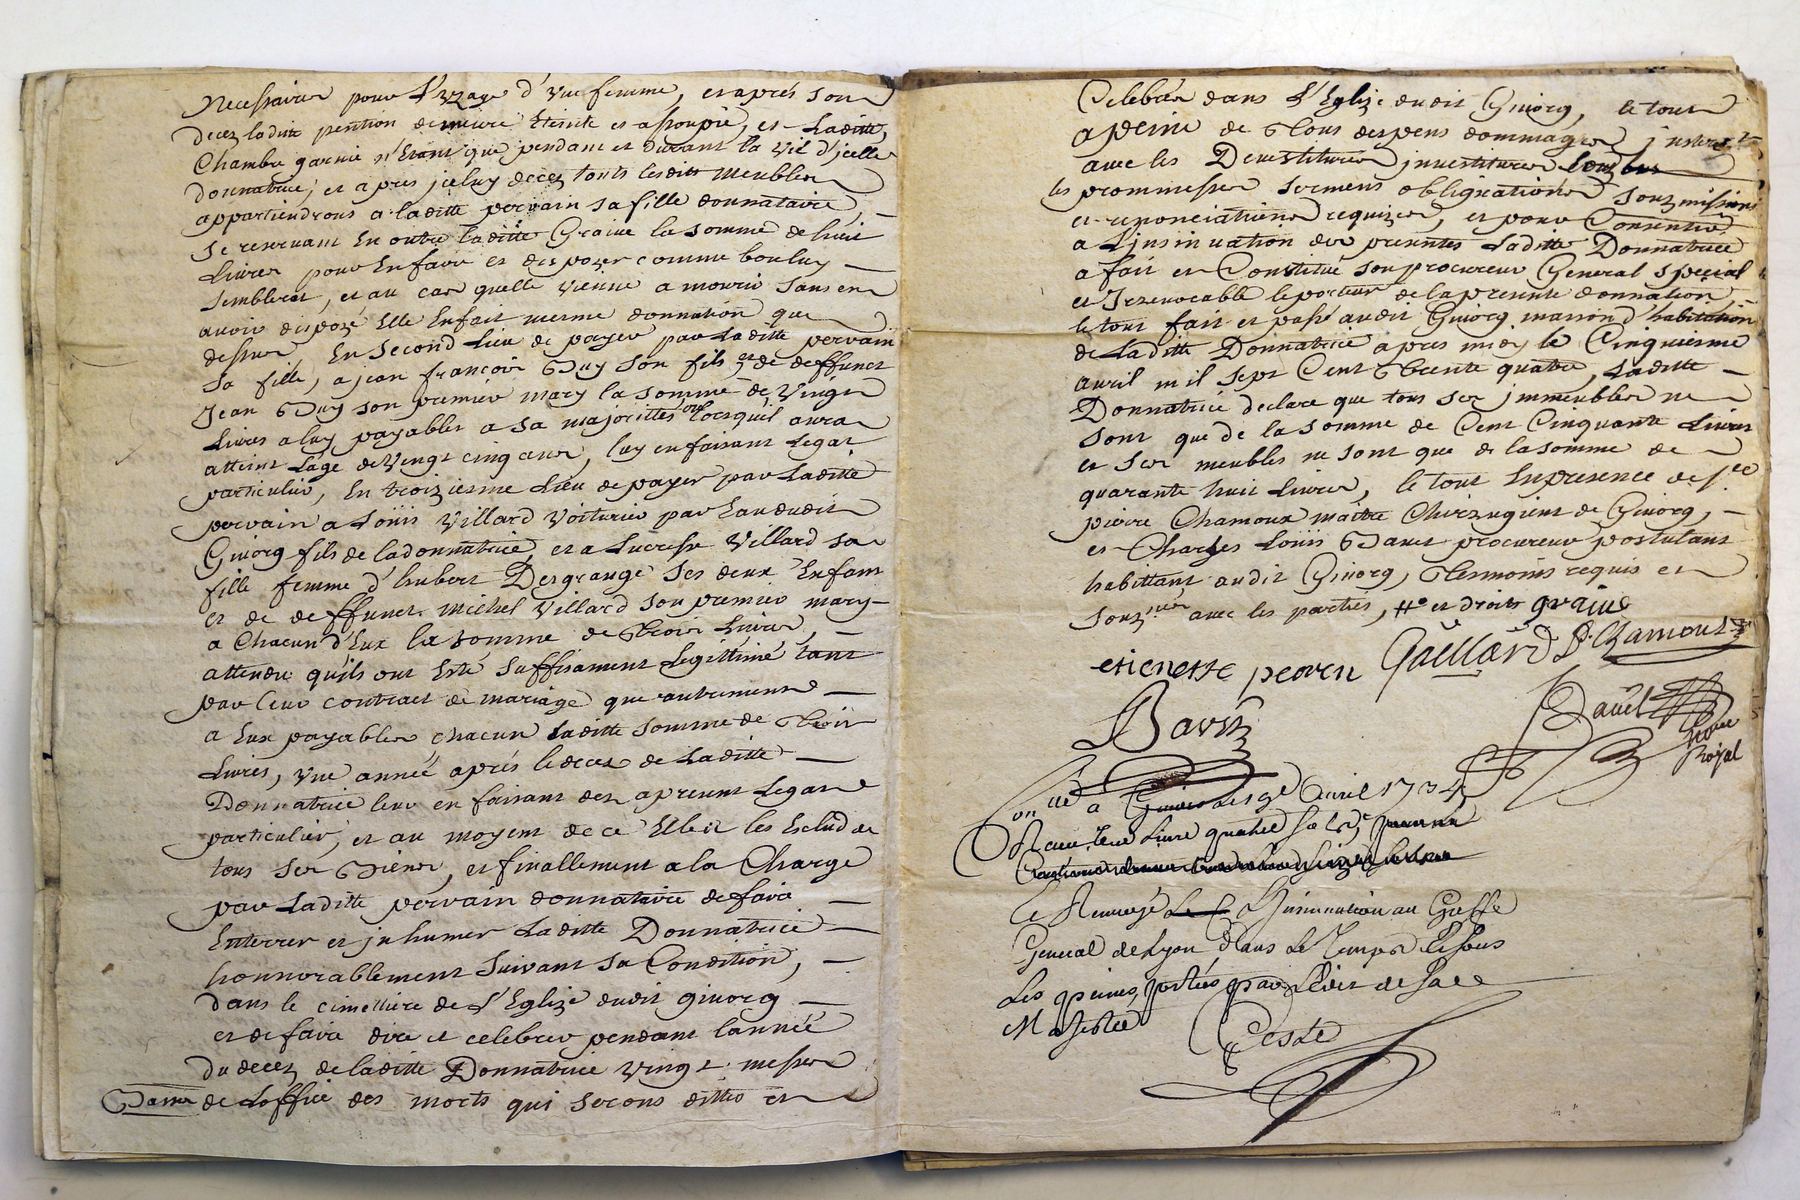 Necessaires pour L'uzage d'vne femme, et après son
deces ladite pention demeure Eteinte et assoupie, et Laditte
Chambre garnie n'Etant que pendant et durant la vie d'jcelle
donnatrice, et apres jceluy deces touts lesdits meubles
appartiendrons a laditte pervain sa fille donnataire,
Se reservant En outre laditte Graine la somme de huit
Livres pour En faire et disposer comme bon luy
semblera, et au cas quelle vienne a mourir sans en
avoir dispozé Elle En fait mesme donnation que
dessus, En second Lieu de payer par Laditte pervain
sa fille, a jean françois Guy son fils et de deffunct
Jean Guy son premier mary la somme de vingt
Livres a luy payables a sa majorittés ou lorsquil aura
atteint Lage de vingt cinq ans, luy en faisant Legat
particulier, En troiziesme Lieu de payer par Laditte
pervain a Loüis Villard Voiturier par Eau dudit
Givorg fils de ladonnatrice, et a Lucresse Villard sa
fille femme d'hubert Desgrange ses deux Enfans
et de deffunct Michel Villard son premier mary
a Chacun d'Eux la somme de Trois Livres,
attendu qu'ils ont Esté suffisament Legittimé tant
par leur contract de mariage que autrement
a Eux payables chacun Laditte somme de Trois
Livres, vne année après le deces de Laditte
Donnatrice leur en faisant des apresent Legat
particulier, et au moyent de ce Elle les Exclud de
tous ses Biens, et finallement a la Charge
par Laditte pervain donnataire de faire
Enterrer et jnhumer Laditte Donnatrice
honnorablement suivant sa Condition,
dans le cimettiere de L'Eglize dudit givorg
et de faire dire et celebrer pendant l'année
du deces de laditte Donnatrice vingt messes
de Loffice des morts qui serons dittes et
Celebrés dans L'Eglize dudit Givorg, le tout
a peine de Tous despens dommages jnterests
avec les Devestitures jnvestitures
les prommesses sermens obligations souzmissions
et renonciations requizes, et pour Consentir
a L'insinuation des presentes Laditte Donnatrice
a fait et Constitué son procureur General special
et Irrevocable le porteur de la presente donnation,
le tout fait et passé audit Givorg maison d'habitation
de Laditte Donnatrice apres midy le Cinquiesme
avril mil sept Cent Trente quatre, Laditte
Donnatrice declare que tous ses jmmeubles ne
sont que de la somme de Cent Cinquante Livres
et ses meubles ne sont que de la somme de
quarante huit Livres, le tout En presence de s.r
pierre Chamoux maitre Chirurgient de Givorg,
et Charles Louis Bavet procureur postulant
habittant audit Givorg, Tesmoins requis et
souz.nés avec les parties, et droits graine
etienette pervin Gaillard P. Chamoux
Bavet
No.re Royal
Con.llé a Givors Le 9e Avril 1734
Recu
Le Renvoyé a L'insinuation au Greffe
General de Lyon dans Le Temps et sous
Les peines portées par L'edit de Sa
Majestée
Coste